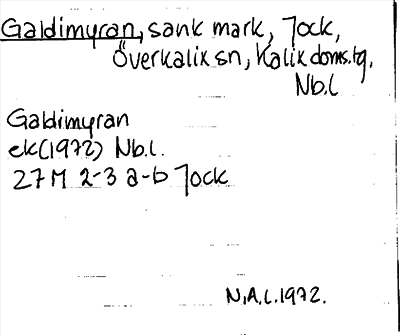 Galdimyran, sank mark, Jock,
Överkalix sn, Kalix doms.tg,
Nb.l
Galdimyran
ek(1972) Nb.l.
27M 2-3 a-b Jock
N.A.l.1972.